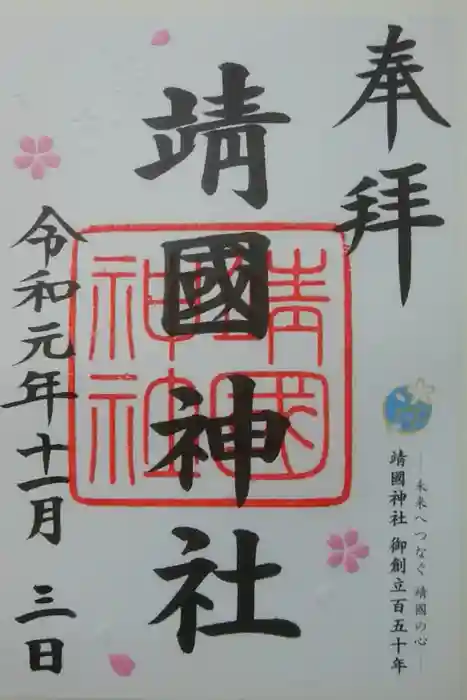 奉拝
靖國神社
靖國
神社
令和元年十一月 三日
―未来へつなぐ 靖國の心―
靖國神社 御創立百五十年